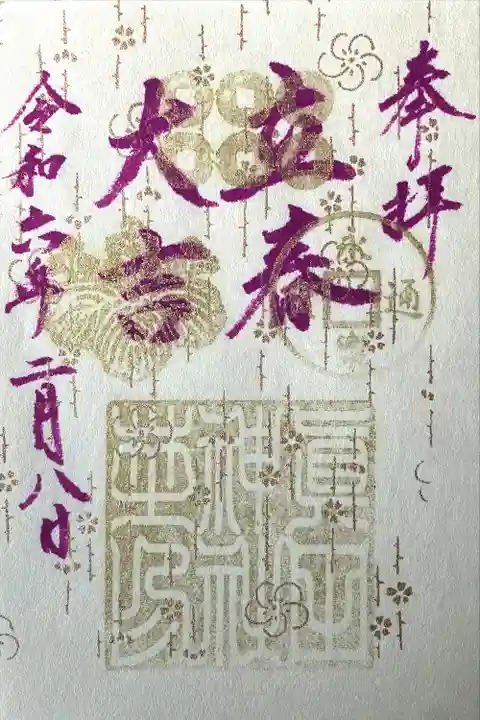 奉拝
立春
大吉
令和六年二月八日
眞田神社之印
通